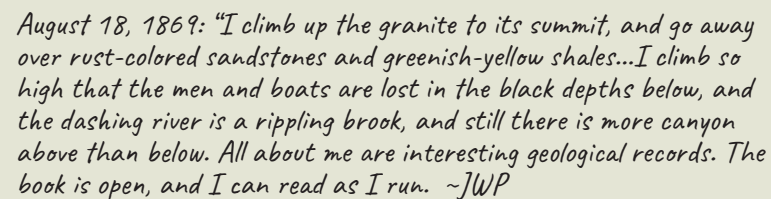 August 18, 1869: “I climb up the granite to its summit, and go away
over rust-colored sandstones and greenish-yellow shales...I climb so
high that the men and boats are lost in the black depths below, and
the dashing river is a rippling brook, and still there is more canyon
above than below. All about me are interesting geological records. The
book is open, and I can read as I run. ~JWP